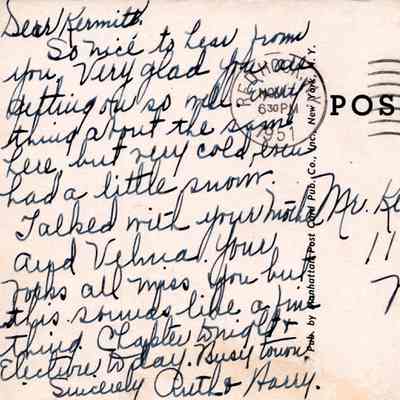 Dear Kermith.
So nice to hear from
you. Very glad you are
getting on so well. Every
thing about the same
here, but very cold, even
had a little snow.
Talked with your mother
and Velma. Your
folks all miss you but
this sounds like a fine
thing. Chapter tonight &
Election to day. Busy town.
Sincerely Ruth & Harry.
6 30 PM
1951
POS
Pub. by Manhattan Post Card Pub. Co., Inc., New York, N. Y.
Mr. Ke
11